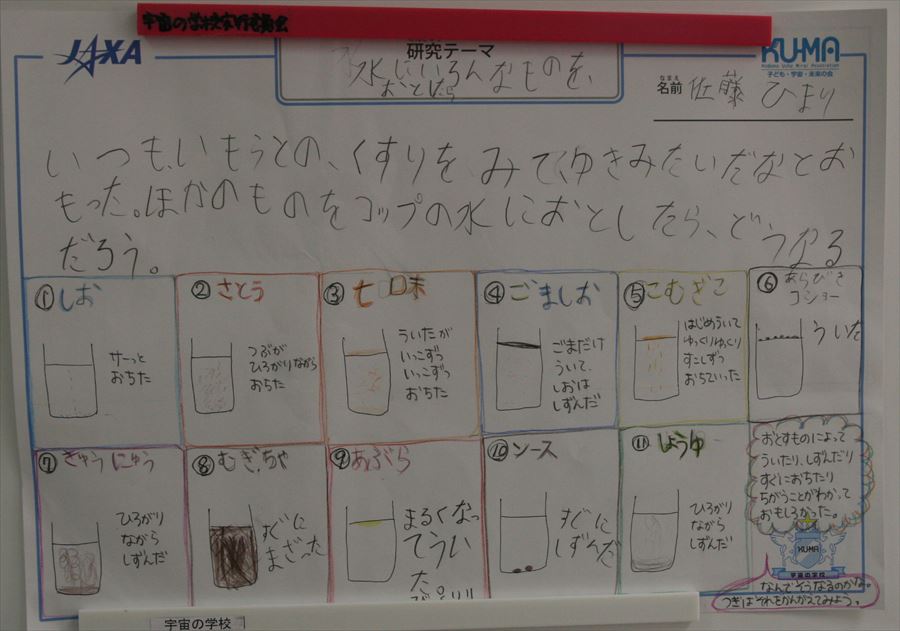 宇宙の学校実行委員会
JAXA
研究テーマ
水にいろんなものを、
おとしたら
KU-MA
Kodomo Uchu Mirai Association
子ども・宇宙・未来の会
なまえ
名前 佐藤 ひまり
いつも、いもうとの、くすりを みてゆきみたいだなとお
もった。ほかのものをコップの水におとしたら、どうなる
だろう。
①しお
サーっと
おちた
②さとう
つぶが
ひろがりながら
おちた
③七口味
ういたが
いっこずつ
いっこずつ
おちた
④ごましお
ごまだけ
ういて、
しおは
しずんだ
⑤こむぎこ
はじめういて
ゆっくりゆっくり
すこしずつ
おちていった
⑥あらびき
コショー
ういた
⑦ぎゅうにゅう
ひろがり
ながら
しずんだ
⑧むぎちゃ
すぐに
まざった
⑨あぶら
まるくなっ
てうい
た。
⑩ソース
すぐに
しずんだ
⑪しょうゆ
ひろがり
ながら
しずんだ
おとすものによって
ういたり、しずんだり
すぐにおちたり
ちがうことがわかって
おもしろかった。
KUMA
宇宙の学校
なんでそうなるのかな。
つぎはそれをかんがえてみよう。
宇宙の学校